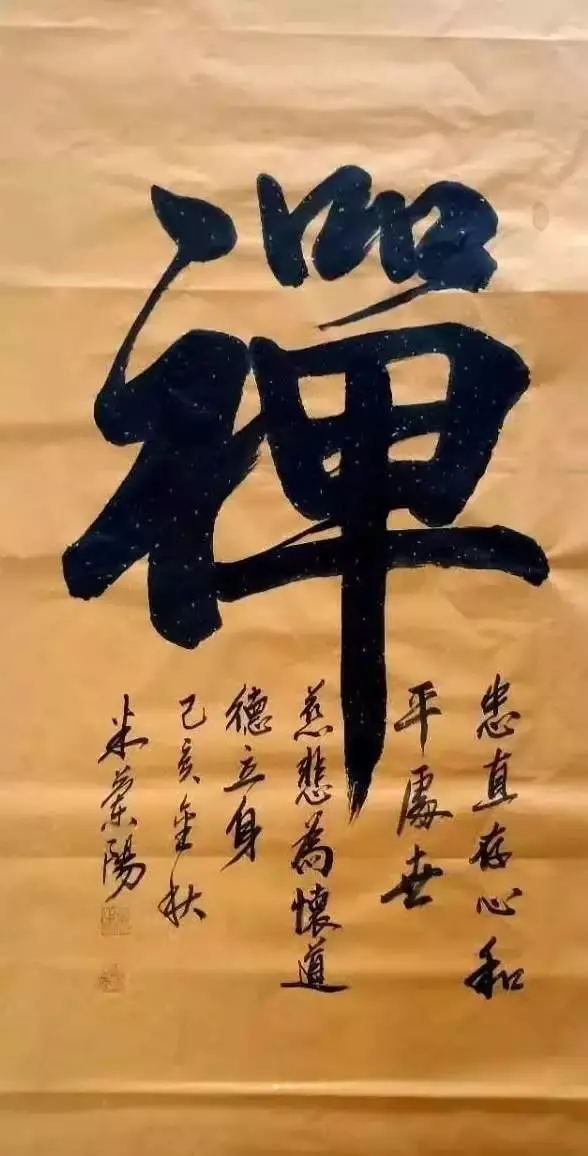 禪
忠直存心和
平處世
慈悲為懷道
德立身
己亥金秋
米蘭陽